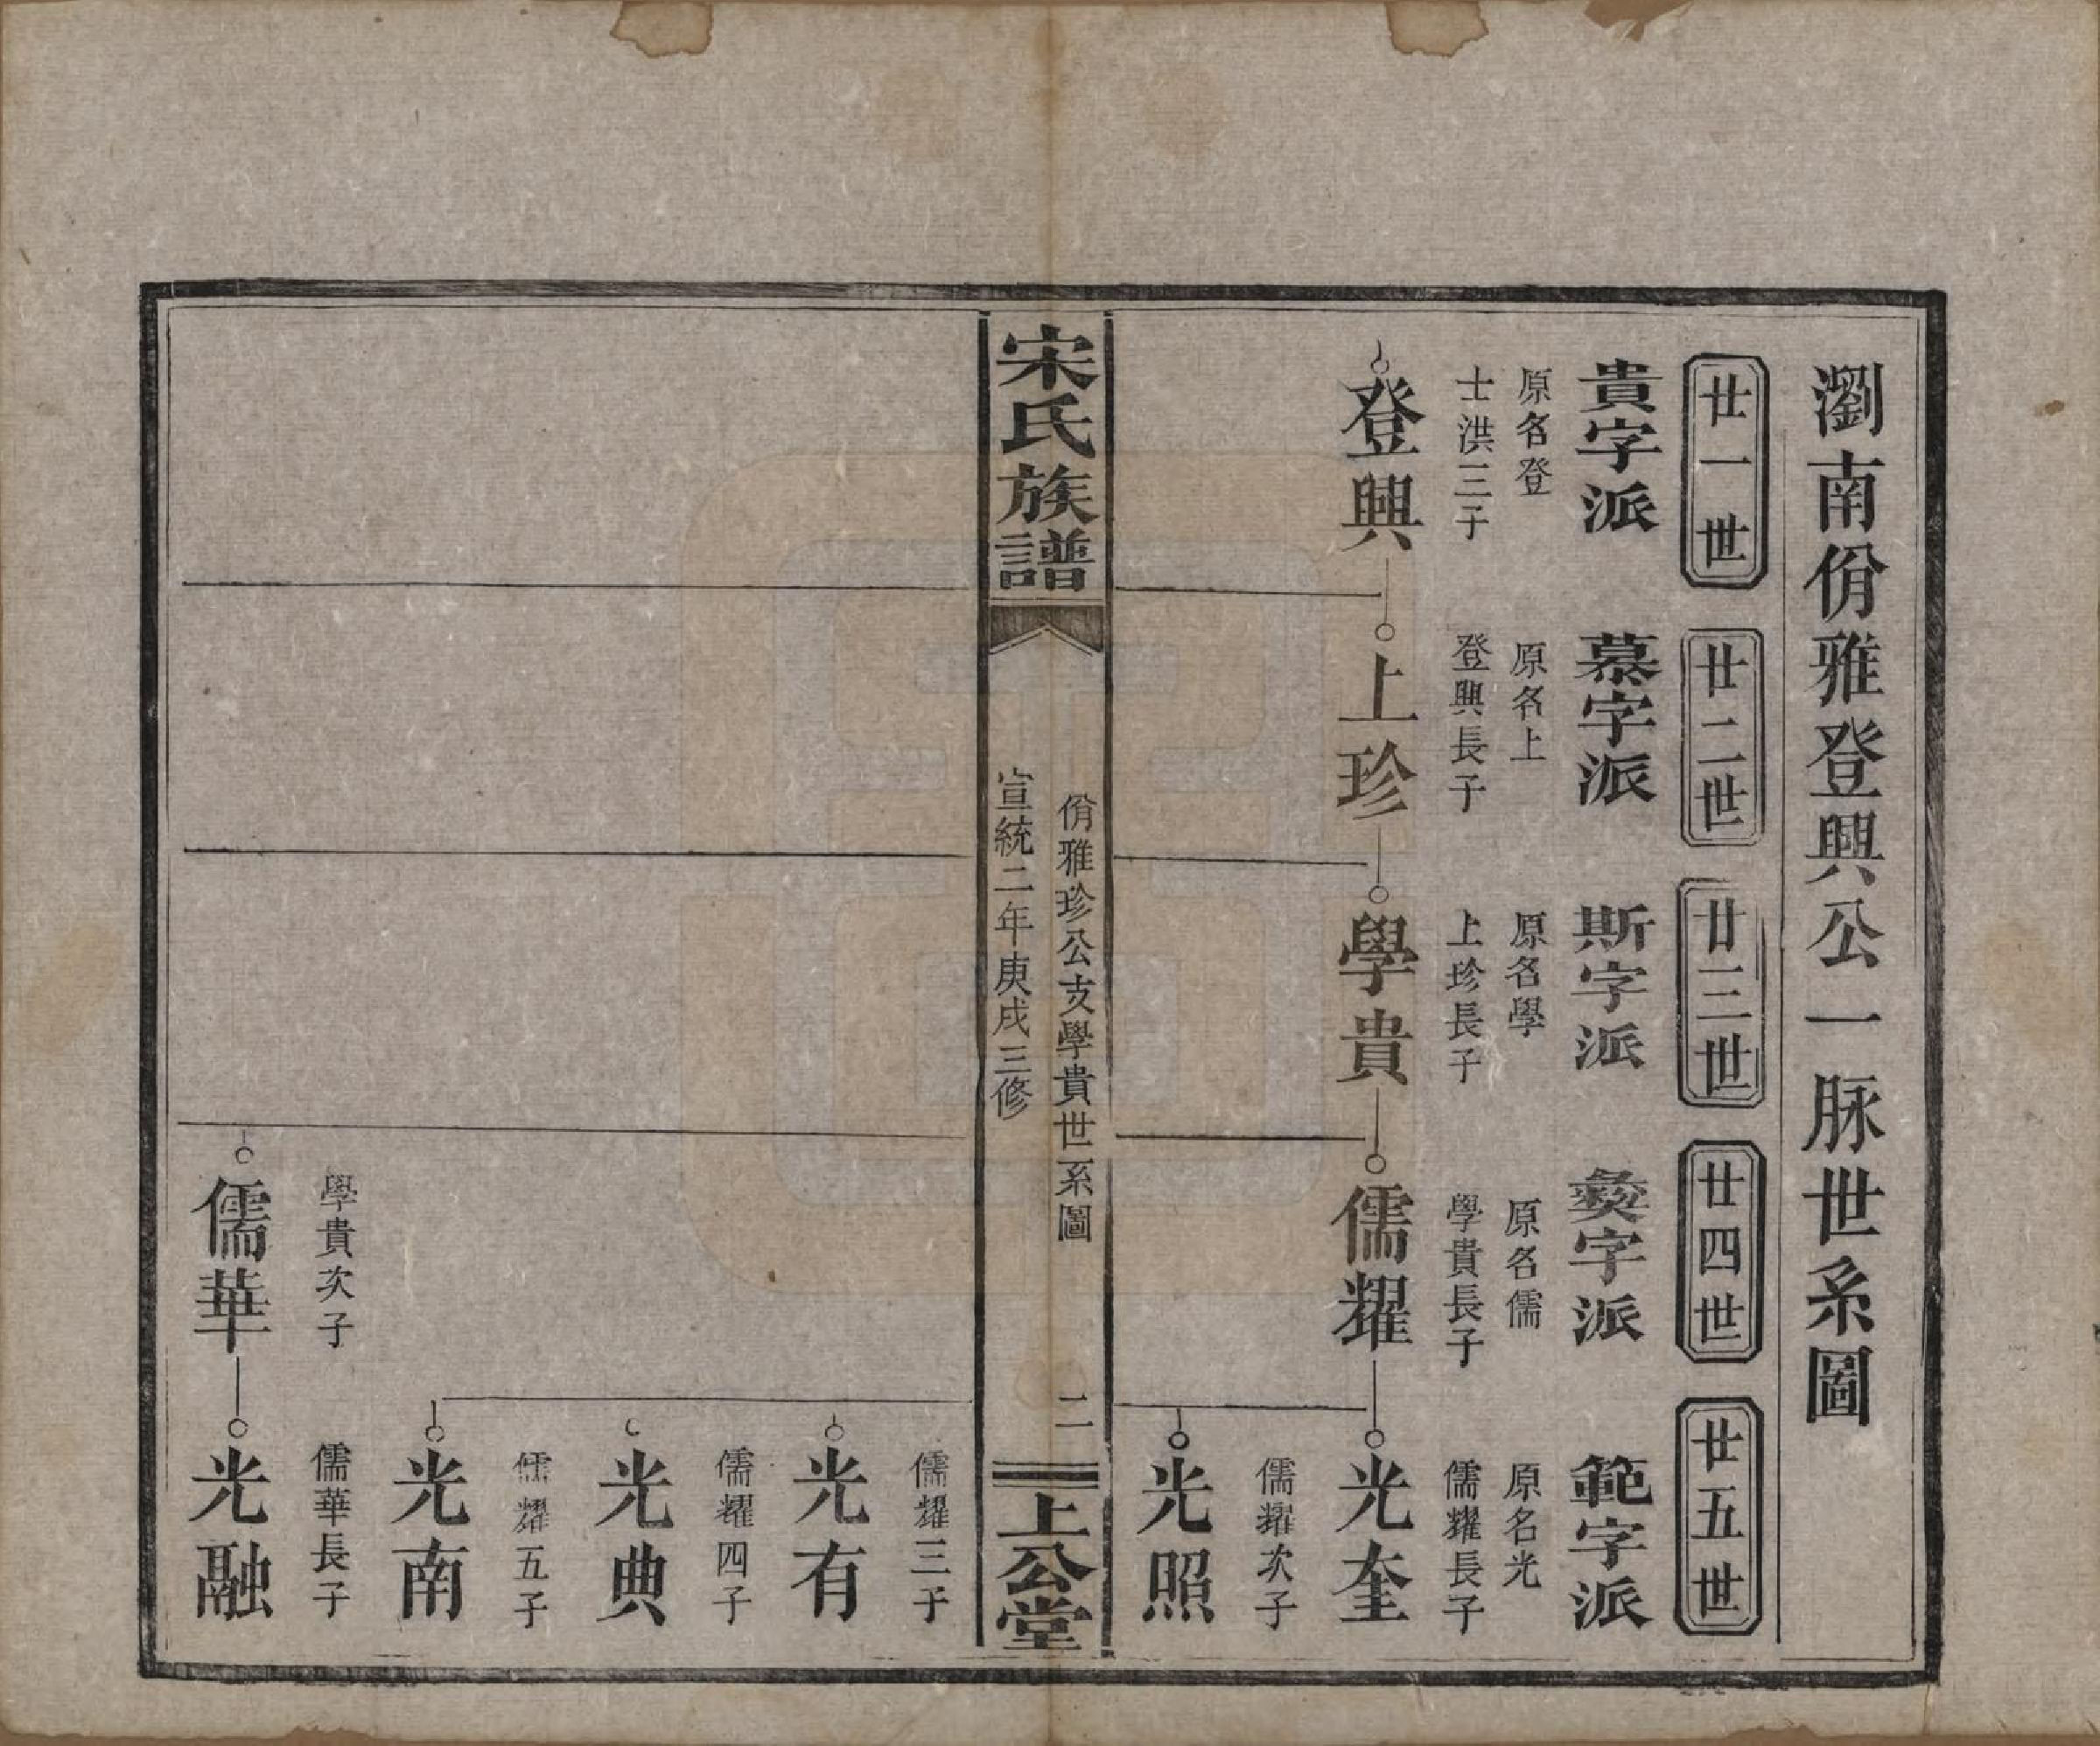 瀏南佾雅登興公一脉世系圖
廿一世
廿二世
廿三世
廿四世
廿五世
貴字派
慕字派
斯字派
彝字派
範字派
原名登
原名上
原名學
原名儒
原名光
士洪三子
登興長子
上珍長子
學貴長子
儒耀長子
登興
上珍
學貴
儒耀
光奎
儒耀次子
光照
宋氏族譜
佾雅珍公支學貴世系圖
宣統二年庚戌三修
二
上公堂
儒耀三子
光有
儒耀四子
光典
儒耀五子
光南
學貴次子
儒華長子
儒華
光融